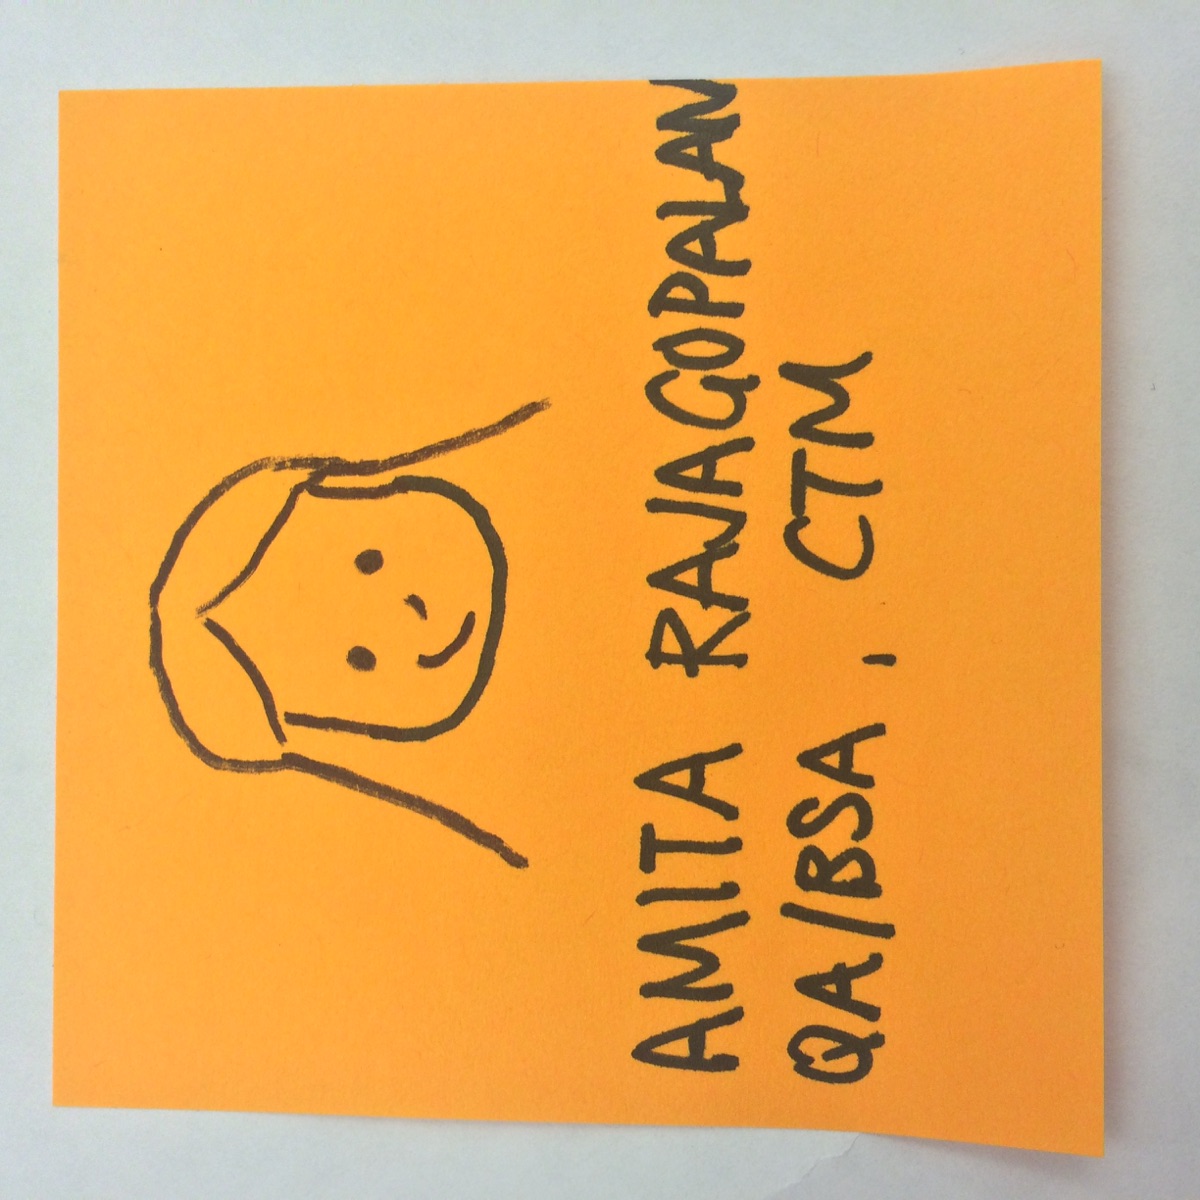 AMITA RAJAGOPALAN
QA/BSA, CTM